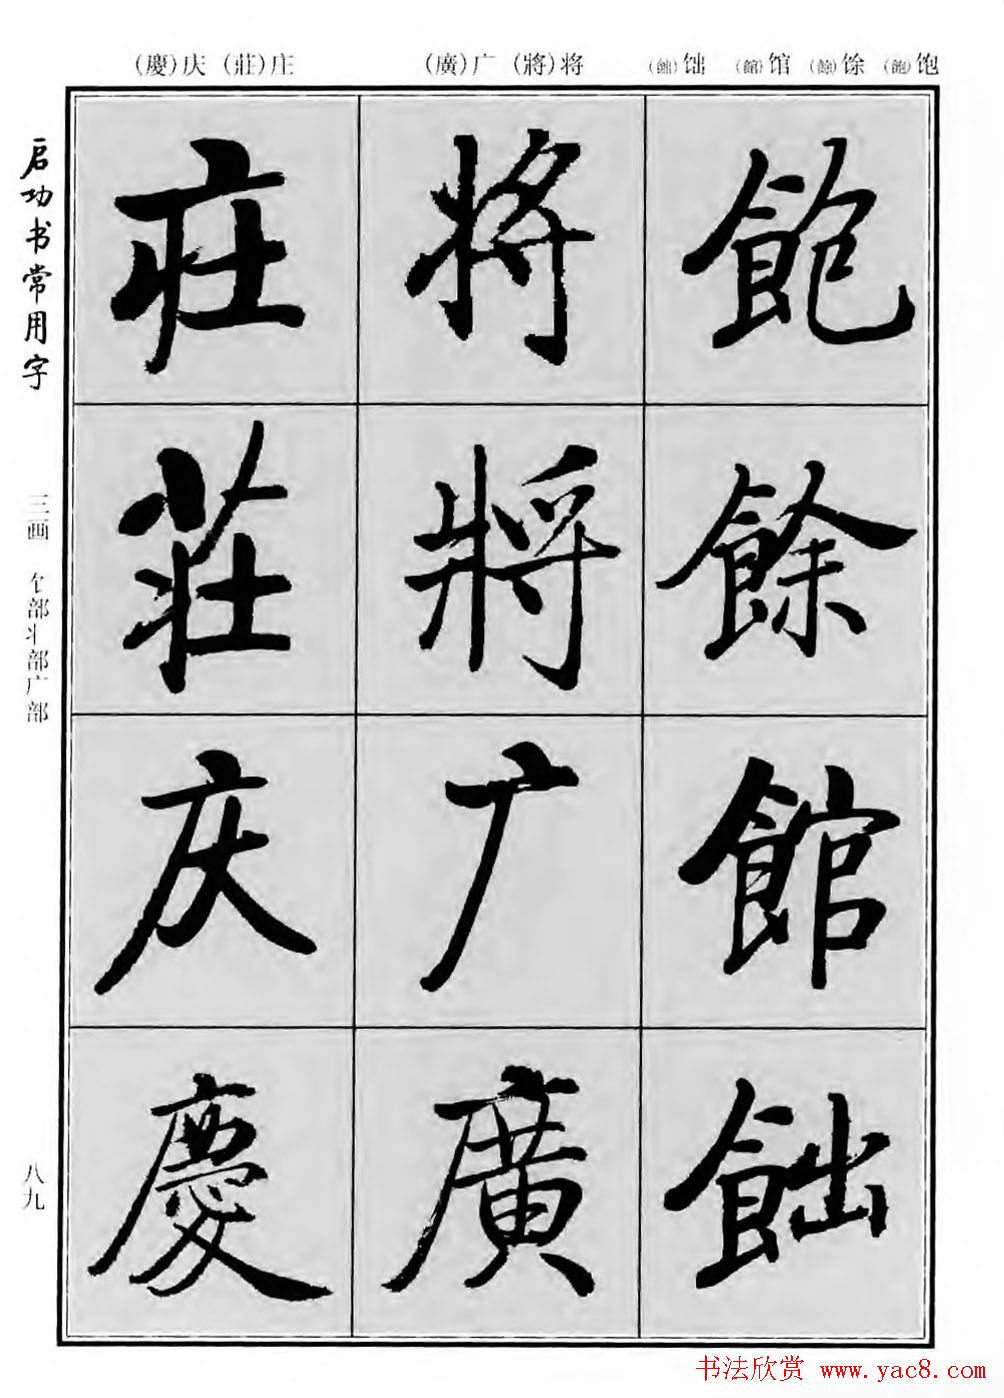 (慶)庆 (莊)庄 (廣)广 (將)将 (飿)饳 (館)馆 (餘)馀 (飽)饱
飽餘館飿
将將广廣
庄莊庆慶
启功书常用字
三画 饣部丬部广部
八九
书法欣赏 www.yac8.com